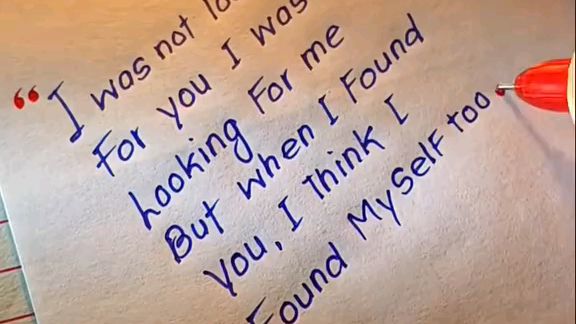 “ I was not lo
For you I was
Looking For me
But when I Found
you, I think I
Found MySelf too